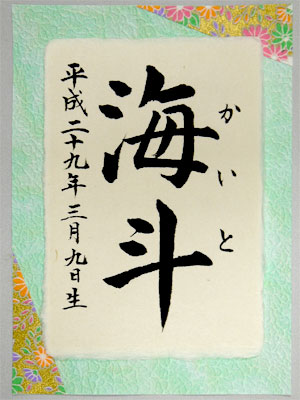 海斗
かいと
平成二十九年三月九日生